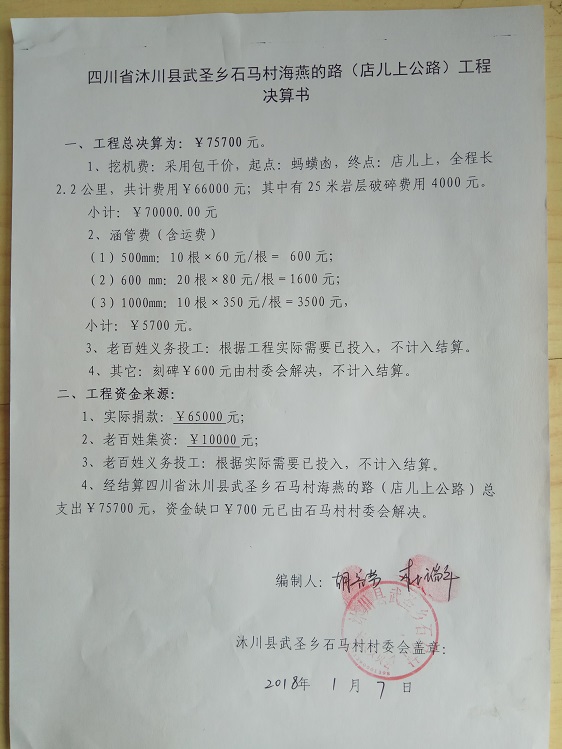 四川省沐川县武圣乡石马村海燕的路（店儿上公路）工程
决算书
一、工程总决算为：￥75700元。
1、挖机费：采用包干价，起点：蚂蟥函，终点：店儿上，全程长
2.2公里，共计费用￥66000元；其中有25米岩层破碎费用4000元。
小计：￥70000.00元
2、涵管费（含运费）
（1）500mm：10根×60元/根= 600元；
（2）600 mm：20根×80元/根=1600元；
（3）1000mm：10根×350元/根=3500元，
小计：￥5700元。
3、老百姓义务投工：根据工程实际需要已投入，不计入结算。
4、其它：刻碑￥600元由村委会解决，不计入结算。
二、工程资金来源：
1、实际捐款：￥65000元；
2、老百姓集资：￥10000元；
3、老百姓义务投工：根据实际需要已投入，不计入结算。
4、经结算四川省沐川县武圣乡石马村海燕的路（店儿上公路）总
支出￥75700元，资金缺口￥700元已由石马村村委会解决。
编制人：
沐川县武圣乡石
沐川县武圣乡石马村村委会盖章：
2018年 1月 7日